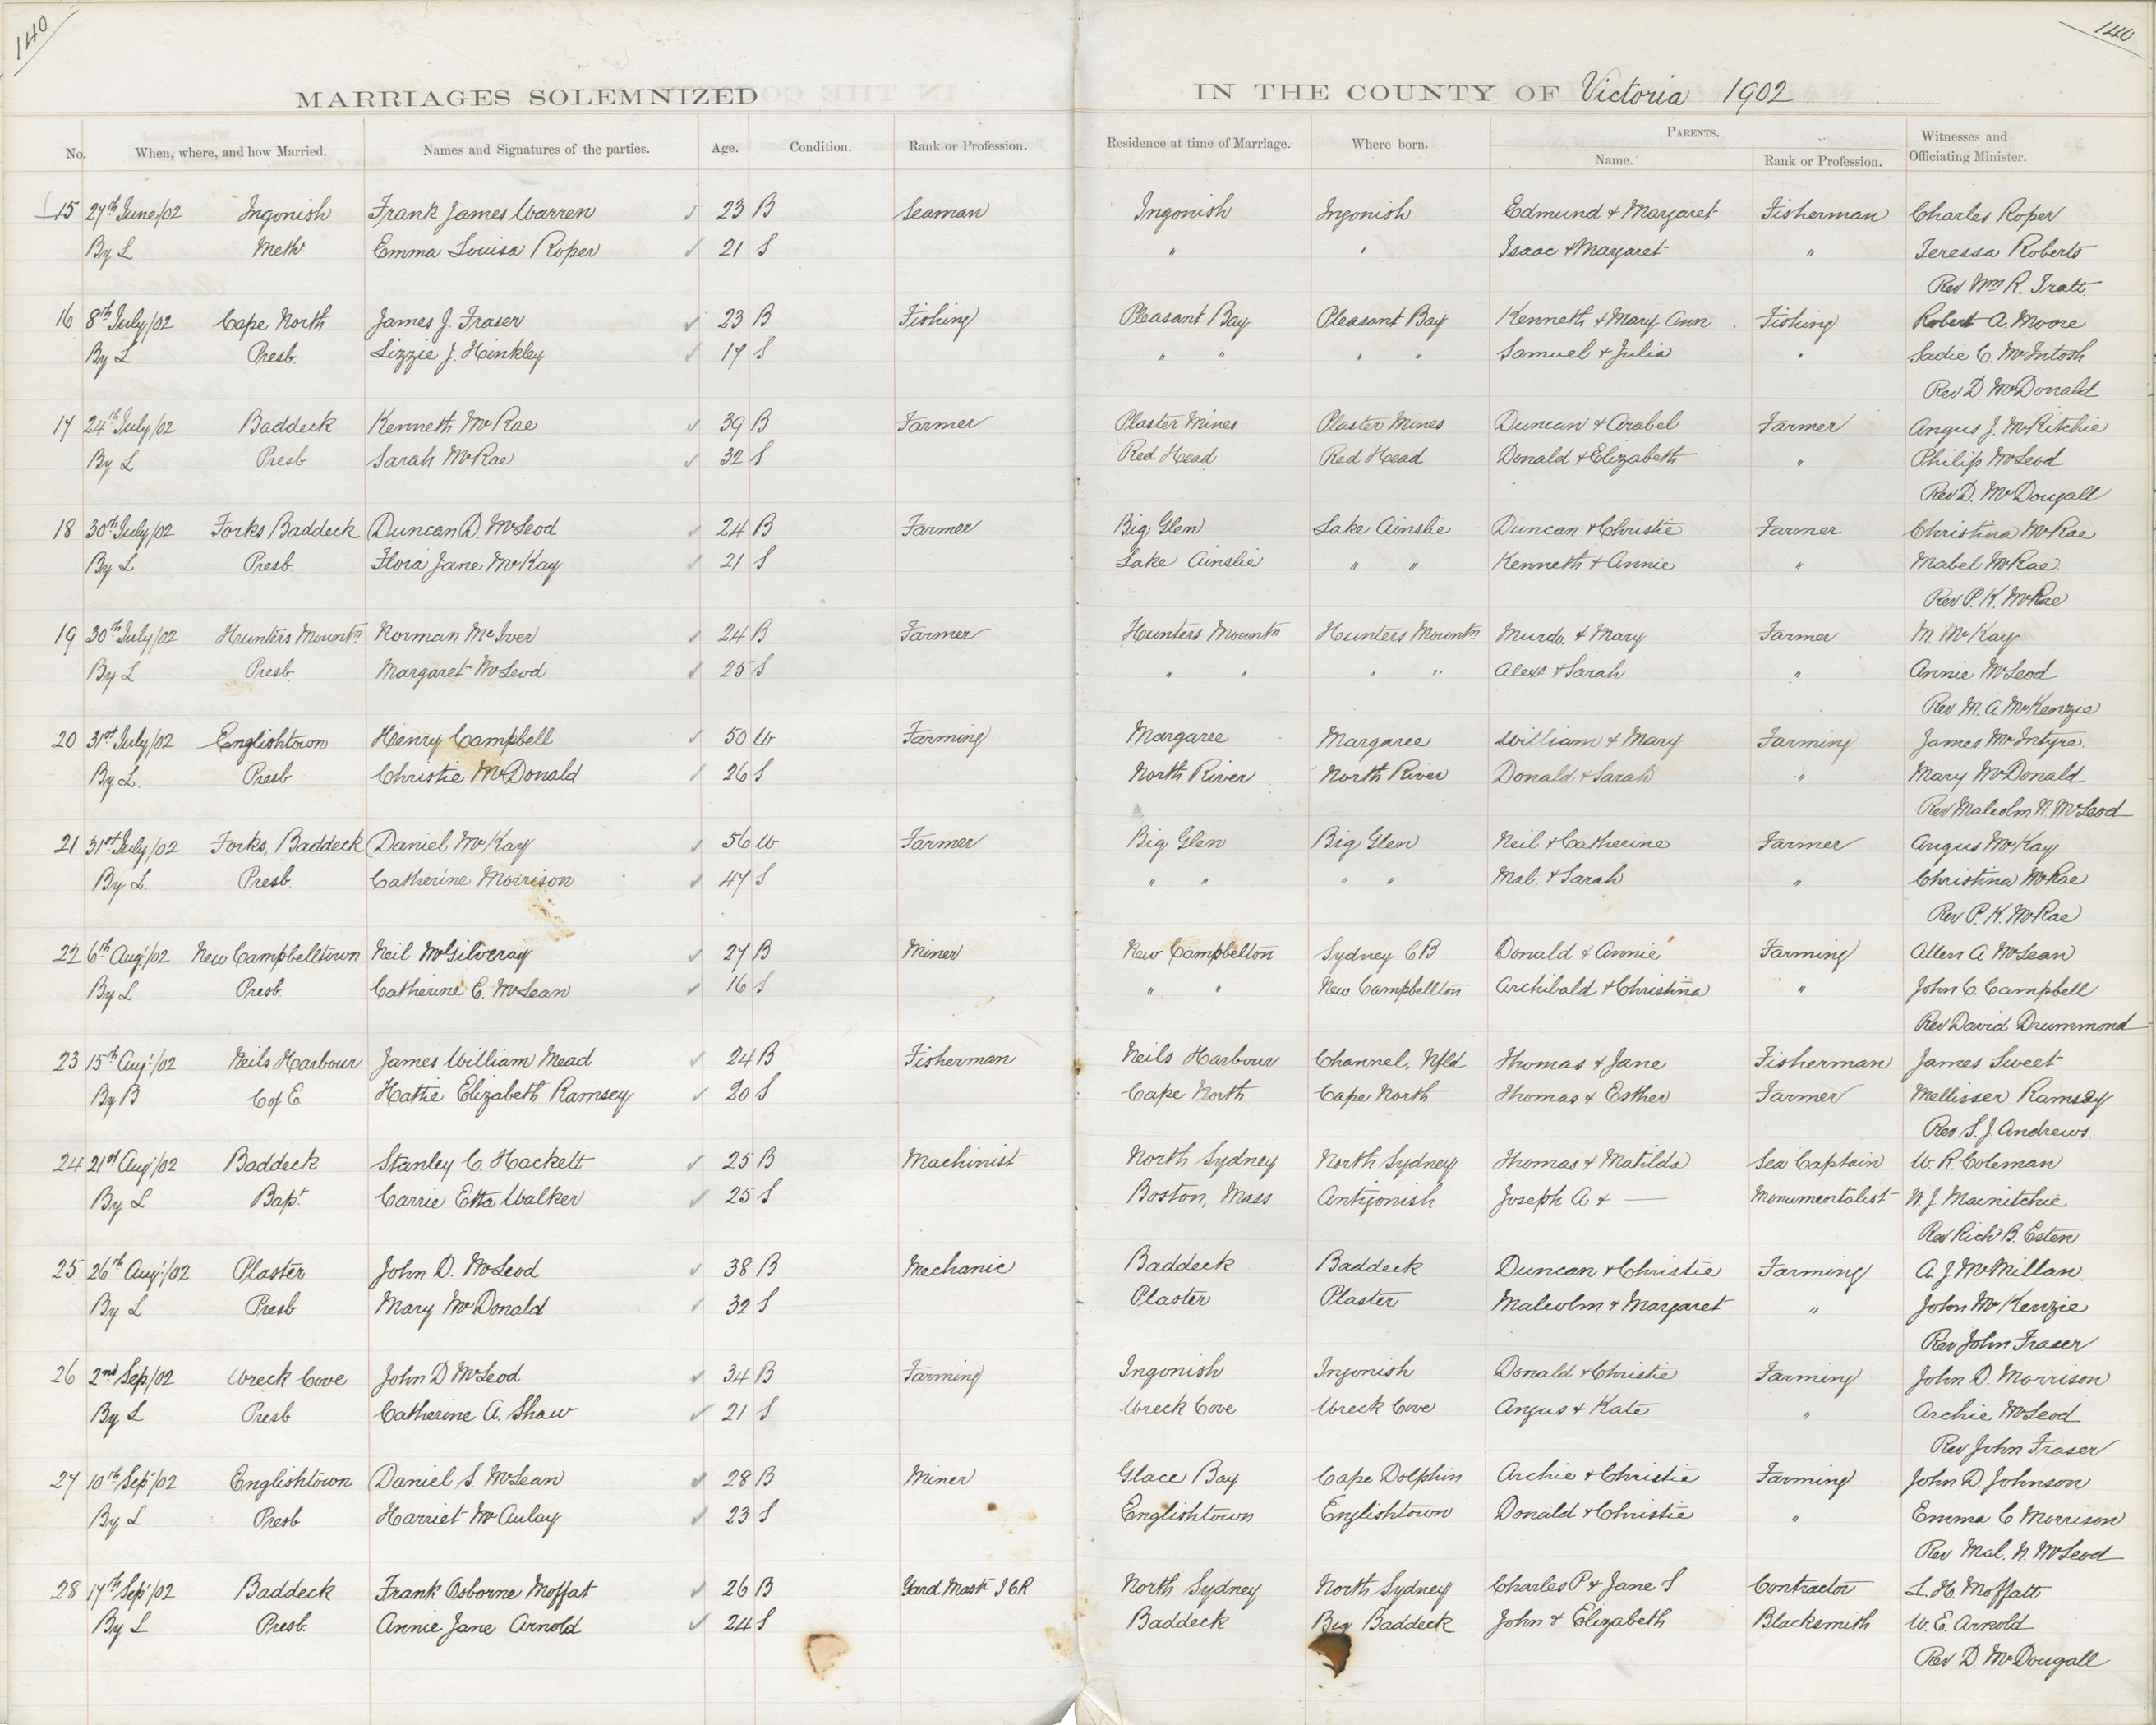 140
140
MARRIAGES SOLEMNIZED IN THE COUNTY OF Victoria 1902
No. When, where, and how Married. Names and Signatures of the parties. Age. Condition. Rank or Profession. Residence at time of Marriage. Where born. PARENTS. Name. Rank or Profession. Witnesses and Officiating Minister.
15 27th June/02 Ingonish Frank James Warren ✓ 23 B Seaman Ingonish Ingonish Edmund & Margaret Fisherman Charles Roper
By L Meth. Emma Louisa Roper ✓ 21 S " " Isaac & Margaret " Teressa Roberts
Rev Wm R. Tratt
16 8th July/02 Cape North James J. Fraser ✓ 23 B Fishing Pleasant Bay Pleasant Bay Kenneth & Mary Ann Fishing Robert A. Moore
By L Presb. Lizzie J. Hinkley ✓ 17 S " " " " Samuel & Julia " Sadie C. McIntosh
Rev D. McDonald
17 24th July/02 Baddeck Kenneth McRae ✓ 39 B Farmer Plaster Mines Plaster Mines Duncan & Arabel Farmer Angus J. McRitchie
By L Presb Sarah McRae ✓ 32 S Red Head Red Head Donald & Elizabeth " Philip McLeod
Rev D. McDougall
18 30th July/02 Forks Baddeck Duncan D. McLeod ✓ 24 B Farmer Big Glen Lake Ainslie Duncan & Christie Farmer Christina McRae
By L Presb. Flora Jane McKay ✓ 21 S Lake Ainslie " " Kenneth & Annie " Mabel McRae
Rev P. K. McRae
19 30th July/02 Hunters Mountn Norman McIver ✓ 24 B Farmer Hunters Mountn Hunters Mountn Murdo. & Mary Farmer M. McKay
By L Presb. Margaret McLeod ✓ 25 S " " " " Alexr & Sarah " Annie McLeod
Rev M. A McKenzie
20 31st July/02 Englishtown Henry Campbell ✓ 50 W Farming Margaree Margaree William & Mary Farming James McIntyre
By L. Presb Christie McDonald ✓ 26 S North River North River Donald & Sarah " Mary McDonald
Rev Malcolm N. McLeod
21 31st July/02 Forks, Baddeck Daniel McKay ✓ 56 W Farmer Big Glen Big Glen Neil & Catherine Farmer Angus McKay
By L. Presb. Catherine Morrison ✓ 47 S " " " " Mal. & Sarah " Christina McRae
Rev P. K. McRae
22 6th Aug/02 New Campbelltown Neil McGilvcray ✓ 27 B Miner New Campbellton Sydney CB Donald & Annie Farming Allen A McLean
By L Presb. Catherine E. McLean ✓ 16 S " " New Campbellton Archibald & Christina " John C. Campbell
Rev David Drummond
23 15th Aug/02 Neils Harbour James William Mead ✓ 24 B Fisherman Neils Harbour Channel, Nfld Thomas & Jane Fisherman James Sweet
By B C of E Hattie Elizabeth Ramsey ✓ 20 S Cape North Cape North Thomas & Esther Farmer Mellisser Ramsey
Rev S. J. Andrews.
24 21st Aug/02 Baddeck Stanley C. Hackett ✓ 25 B Machinist North Sydney North Sydney Thomas & Matilda Sea Captain W. R. Coleman
By L Bapt Carrie Etta Walker ✓ 25 S Boston, Mass Antigonish Joseph A & — Monumentalist N. J. Macnitchie
Rev Richd B. Esten
25 26th Aug/02 Plaster John D. McLeod ✓ 38 B Mechanic Baddeck Baddeck Duncan & Christie Farming A. J McMillan.
By L Presb Mary McDonald ✓ 32 S Plaster Plaster Malcolm & Margaret " John McKenzie
Rev John Fraser
26 2nd Sep/02 Wreck Cove John D McLeod ✓ 34 B Farming Ingonish Ingonish Donald & Christie Farming John D. Morrison
By L Presb Catherine A. Shaw ✓ 21 S Wreck Cove Wreck Cove Angus & Kate " Archie McLeod
Rev John Fraser
27 10th Sep/02 Englishtown Daniel S. McLean ✓ 28 B Miner Glace Bay Cape Dolphin Archie & Christie Farming John D. Johnson
By L Presb Harriet McAulay ✓ 23 S Englishtown Englishtown Donald & Christie " Emma C Morrison
Rev Mal. N. McLeod
28 17th Sep/02 Baddeck Frank Osborne Moffat ✓ 26 B Yard Mastr ICR North Sydney North Sydney Charles P & Jane S Contractor L. H. Moffatt
By L Presb. Annie Jane Arnold ✓ 24 S Baddeck Big Baddeck John & Elizabeth Blacksmith W. E. Arnold
Rev D. McDougall